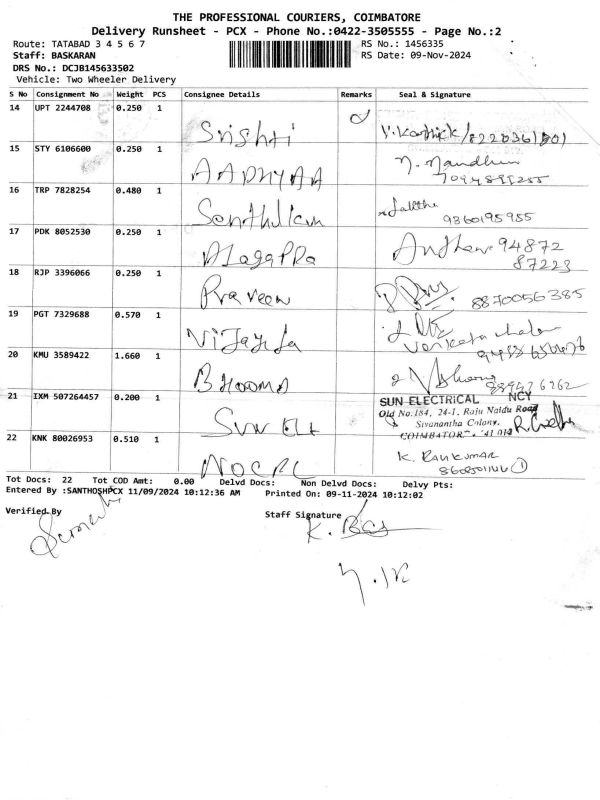 THE PROFESSIONAL COURIERS, COIMBATORE
Delivery Runsheet - PCX - Phone No.:0422-3505555 - Page No.:2
Route: TATABAD 3 4 5 6 7 RS No.: 1456335
Staff: BASKARAN RS Date: 09-Nov-2024
DRS No.: DCJB145633502
Vehicle: Two Wheeler Delivery
S No Consignment No Weight PCS Consignee Details Remarks Seal & Signature
14 UPT 2244708 0.250 1 Srishti V.Karthick/
15 STY 6106600 0.250 1 AADHYAA N. Nandhu
16 TRP 7828254 0.480 1 Senthil Lalitha
9360195955
17 PDK 8052530 0.250 1 ALagappa 94872
87223
18 RJP 3396066 0.250 1 Praveen 8870056385
19 PGT 7329688 0.570 1 Vijaya
20 KMU 3589422 1.660 1 BHOOMA
21 IXM 507264457 0.200 1 SUN ELE SUN ELECTRICAL NCY
Old No.184, 24-1, Raju Naidu Road
Sivanantha Colony,
22 KNK 80026953 0.510 1 K. RAVIKUMAR
Tot Docs: 22 Tot COD Amt: 0.00 Delvd Docs: Non Delvd Docs: Delvy Pts:
Entered By :SANTHOSHPCX 11/09/2024 10:12:36 AM Printed On: 09-11-2024 10:12:02
Verified By Staff Signature